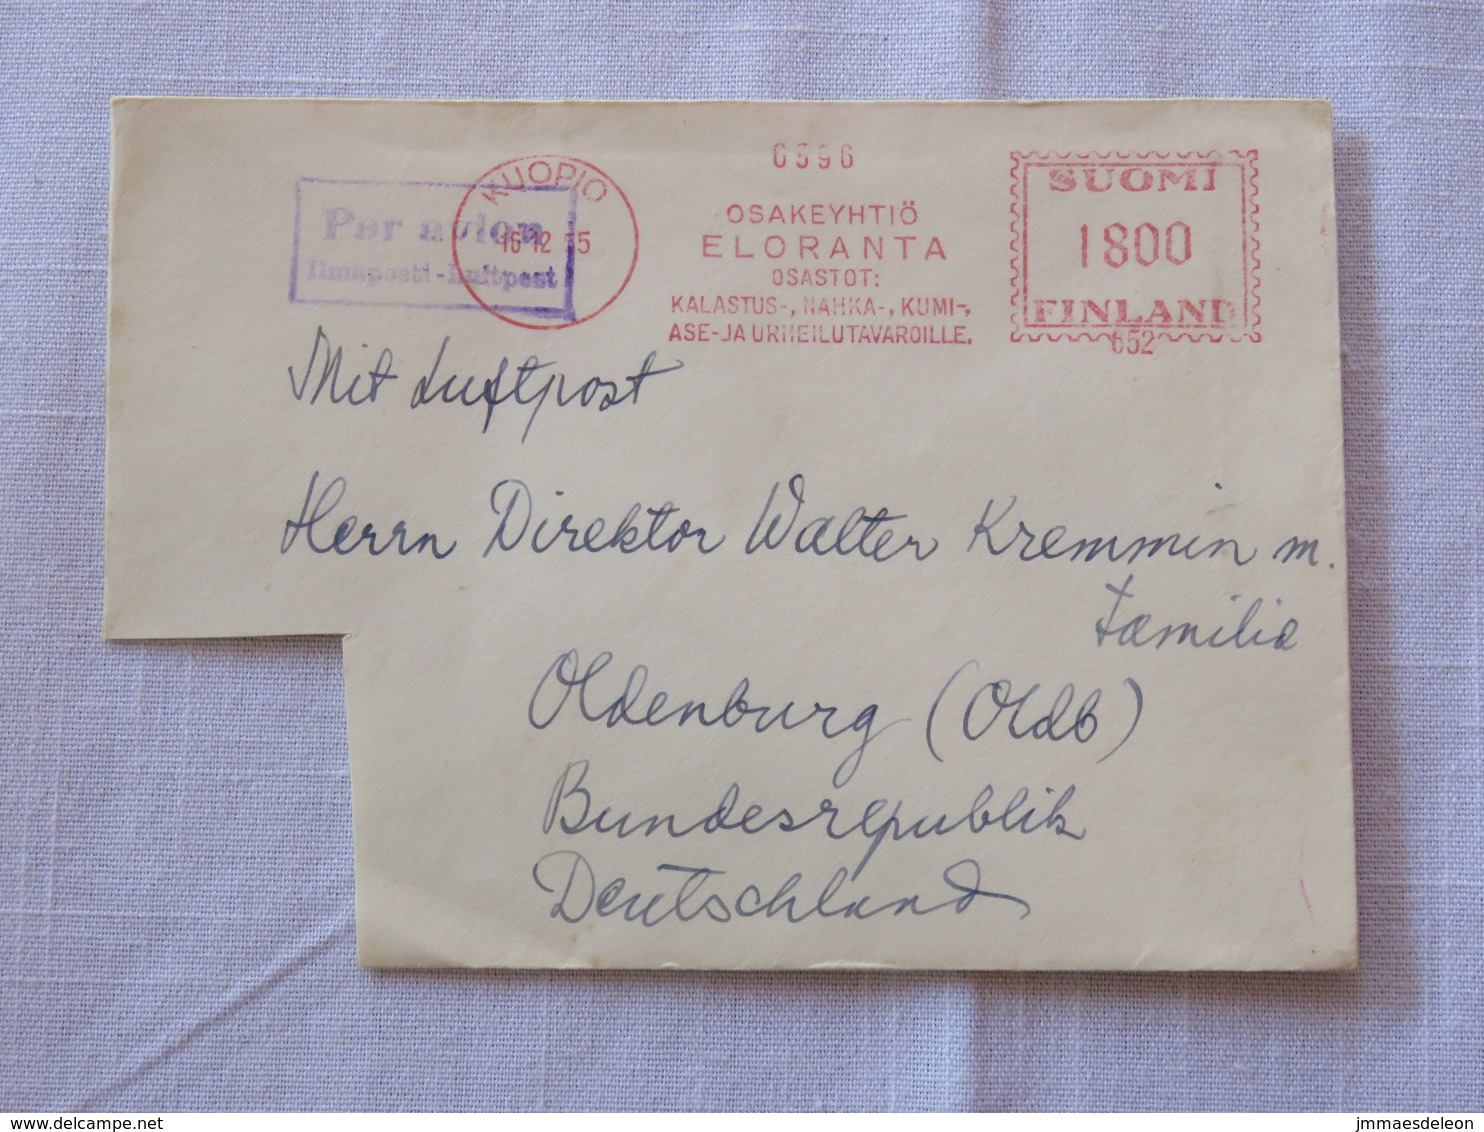 6596
KUOPIO
16 12 55
Par avion
Ilmaposti-Luftpost
OSAKEYHTIÖ
ELORANTA
OSASTOT:
KALASTUS-, NAHKA-, KUMI-,
ASE- JA URHEILUTAVAROILLE.
SUOMI
1800
FINLAND
652
Mit Luftpost
Herrn Direktor Walter Kremmin m.
Familie
Oldenburg (Oldb)
Bundesrepublik
Deutschland
www.delcampe.net
jmmaesdeleon